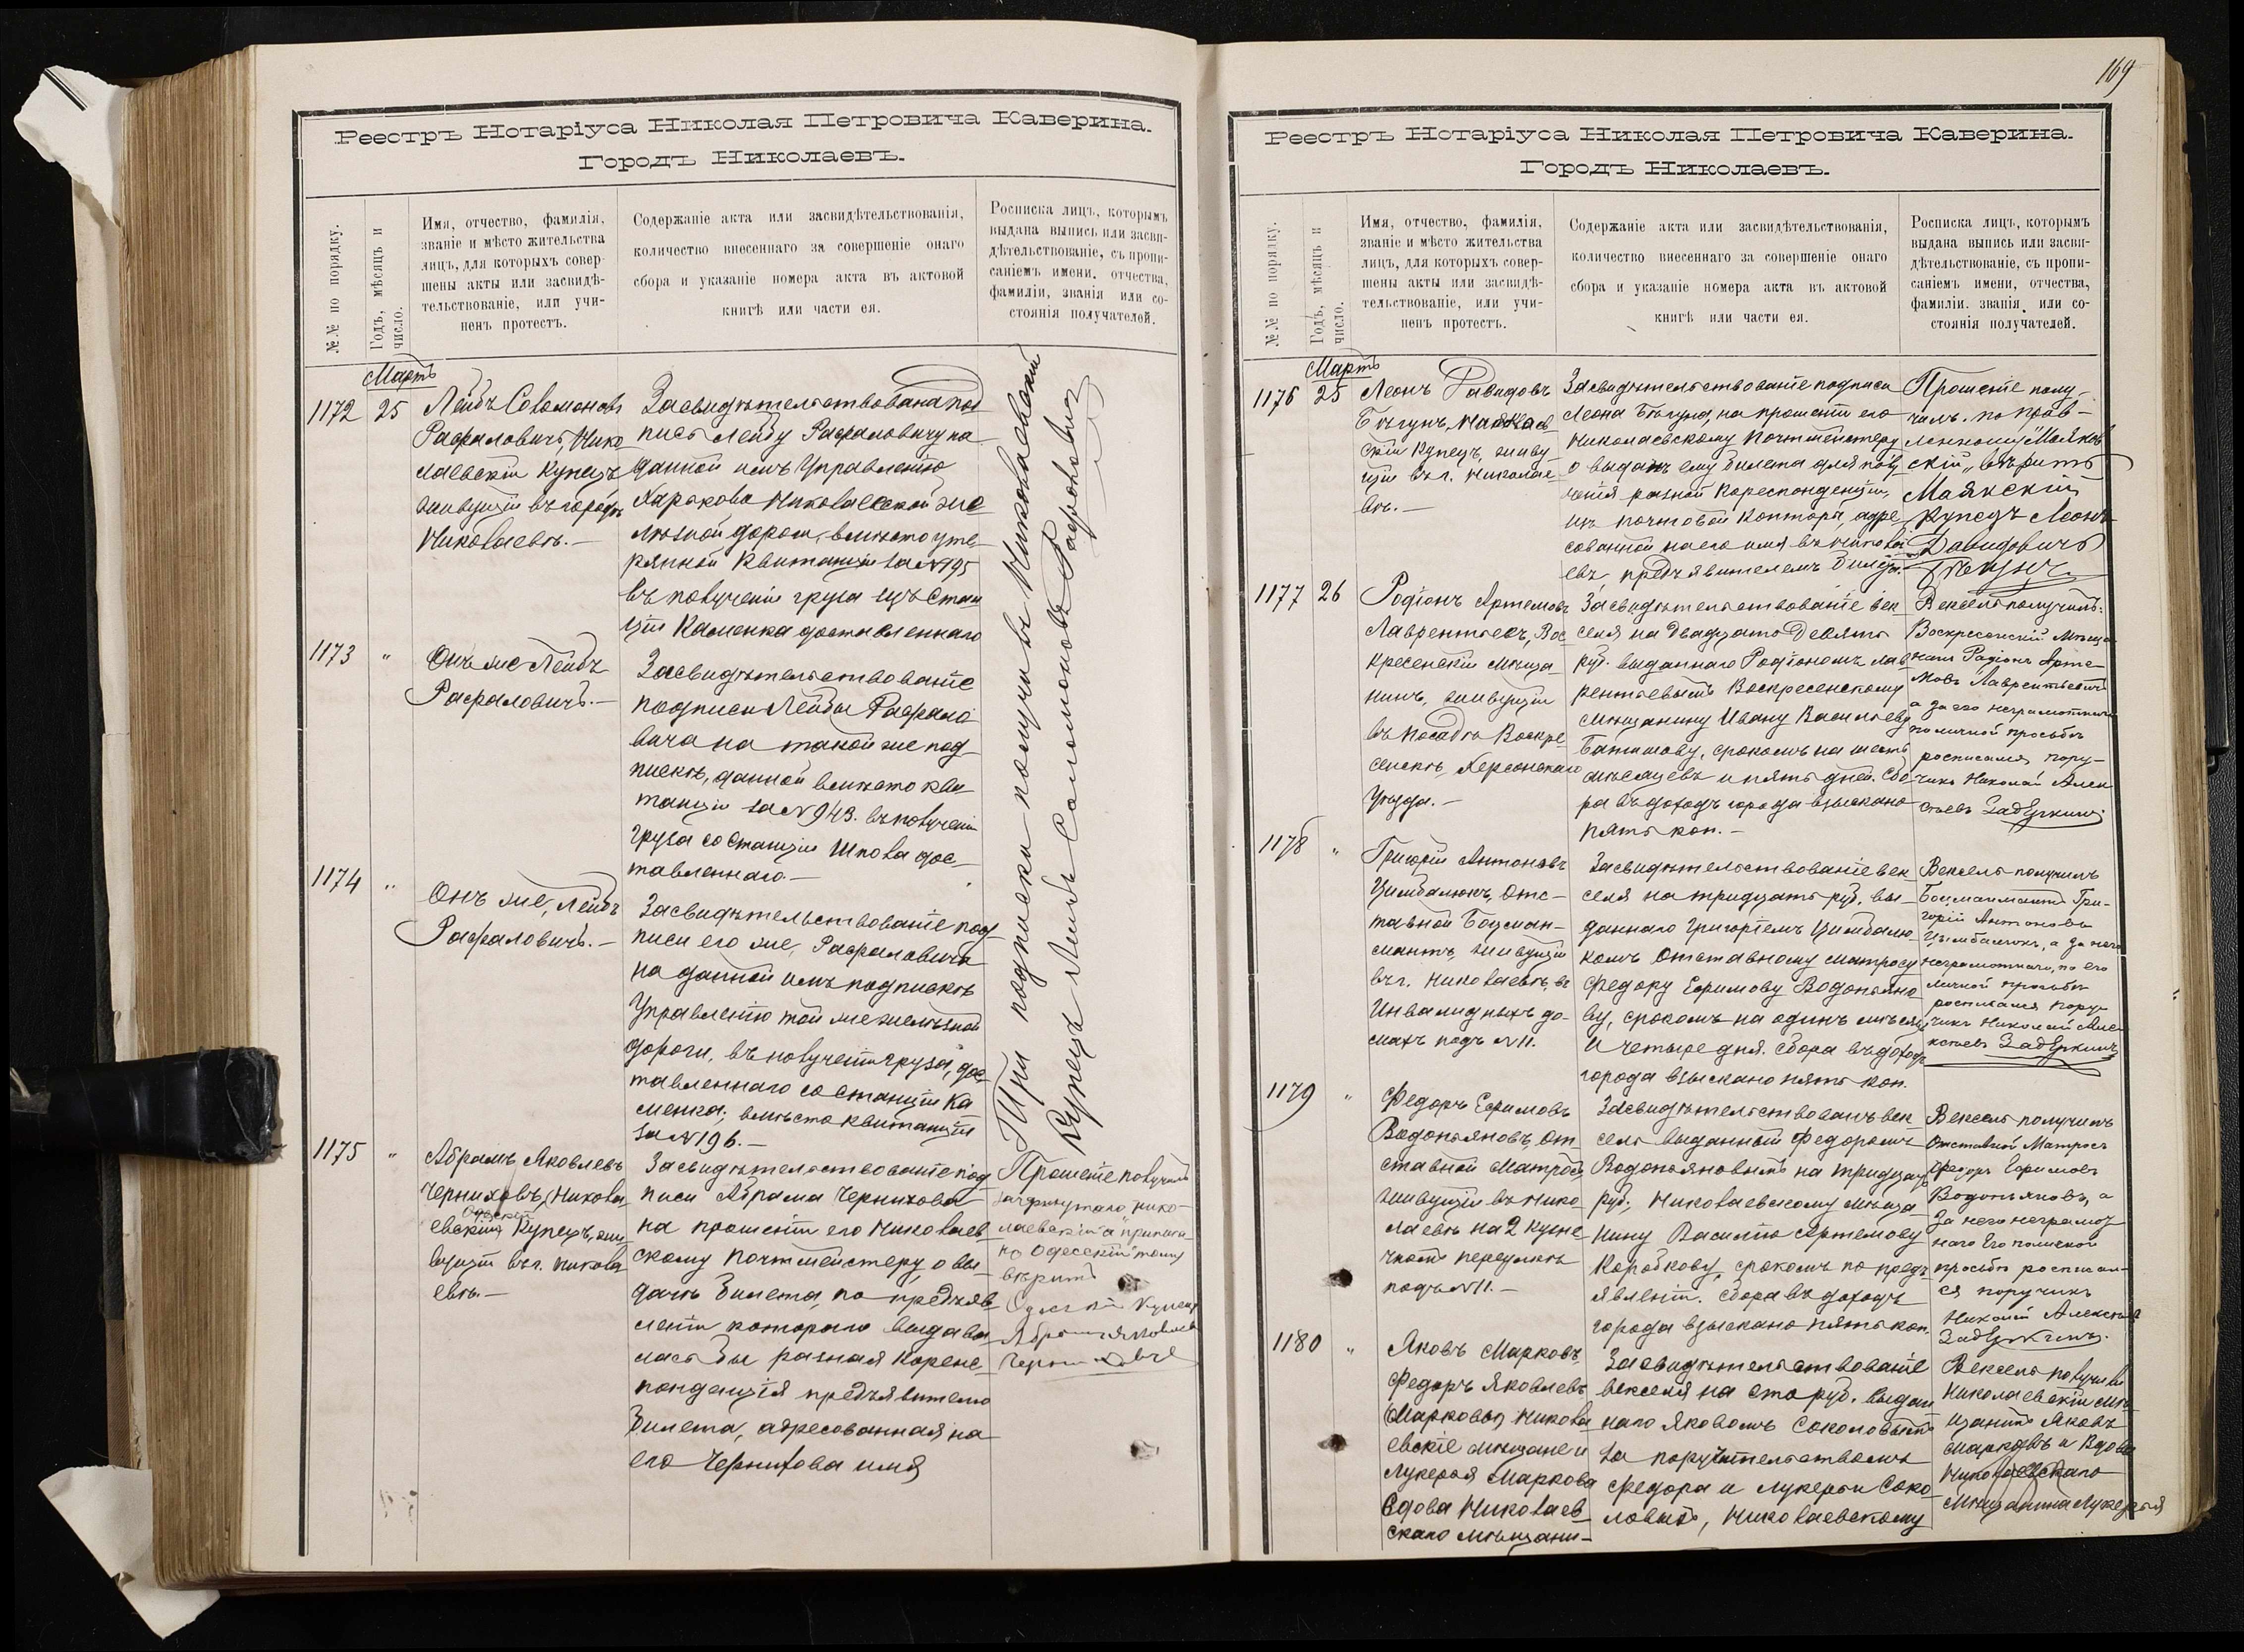 Реестръ Нотаріуса Николая Петровича Каверина.
Городъ Николаевъ.
№№ по порядку.
Годъ, мѣсяцъ и
число.
Имя, отчество, фамилія,
званіе и мѣсто жительства
лицъ, для которыхъ совер-
шены акты или засвидѣ-
тельствованіе, или учи-
ненъ протестъ.
Содержаніе акта или засвидѣтельствованія,
количество внесеннаго за совершеніе онаго
сбора и указаніе номера акта въ актовой
книгѣ или части ея.
Росписка лицъ, которымъ
выдана выпись или засви-
дѣтельствованіе, съ пропи-
саніемъ имени, отчества,
фамиліи, званія или со-
стоянія получателей.
Мартъ
1172 25
Лейбъ Соломоновъ
Рафаловичъ, Нико
лаевскій купецъ
живущій въ городѣ
Николаевѣ.—
Засвидѣтельствована под
пись Лейбу Рафаловичу на
данной имъ Управленію
Харьково Николаевской же
лѣзной дороги, вмѣсто уте-
рянной квитанціи за №195
въ полученіи груза изъ Стан
ціи Каменка доставленнаго
1173 "
Онъ же Лейбъ
Рафаловичъ.—
Засвидѣтельствованіе
подписи Лейбы Рафало
вича на такой же под
пискѣ, данной вмѣсто кви
танціи за №943. въ полученіи
груза со Станціи Шпола дос-
тавленнаго.—
1174 "
Онъ же, Лейбъ
Рафаловичъ.—
Засвидѣтельствованіе под
писи его же, Рафаловича
на данной имъ подпискѣ
Управленію той же желѣзной
дороги, въ полученіи груза, дос-
тавленнаго со станціи Ка
менка, вмѣсто квитанціи
за №196.—
Три подписки получилъ Николаевскій
Купецъ Лейбъ Соломоновъ Рафаловичъ
1175 "
Абрамъ Яковлевъ
Черниховъ, Никола
Одесскій
евскій Купецъ, жи
вущій въ г. Никола
евѣ.—
Засвидѣтельствованіе под
писи Абрама Чернихова
на прошеніи его Николаев
скому Почтмейстеру, о вы
дачѣ билета, по предъяв
леніи котораго выдава
лась бы разная корес
понденція предъявителю
билета, адресованная на
его Чернихова имя
Прошеніе получилъ
зачеркнутаго нико-
лаевскій а приписа-
но Одесскій тому
вѣрить
Одесскій Купецъ
Абрамъ Яковлев
Черниховъ
169
Реестръ Нотаріуса Николая Петровича Каверина.
Городъ Николаевъ.
№№ по порядку.
Годъ, мѣсяцъ и
число.
Имя, отчество, фамилія,
званіе и мѣсто жительства
лицъ, для которыхъ совер-
шены акты или засвидѣ-
тельствованіе, или учи-
ненъ протестъ.
Содержаніе акта или засвидѣтельствованія,
количество внесеннаго за совершеніе онаго
сбора и указаніе номера акта въ актовой
книгѣ или части ея.
Росписка лицъ, которымъ
выдана выпись или засви-
дѣтельствованіе, съ пропи-
саніемъ имени, отчества,
фамиліи, званія или со-
стоянія получателей.
Мартъ
1176 25
Леонъ Давидовъ
Бѣгунъ, Маякскій
скій Купецъ, живу
щій въ г. Николае
вѣ.—
Засвидѣтельствованіе подписи
Леона Бѣгуна, на прошеніи его
Николаевскому Почтмейстеру
о выдачѣ ему билета для полу
ченія разной Кореспонденціи,
изъ почтовой Конторы, адре
сованной на его имя въ Никола
евъ, предъявителемъ билета.
Прошеніе полу-
чилъ. по прав-
ленному „Маяков
скій„ вѣрить
Маякскій
Купецъ Леонъ
Давидовичъ
Бѣгунъ
1177 26
Родіонъ Артемовъ
Лаврентьевъ, Вос
кресенскій мѣща
нинъ, живущій
въ посадѣ Воскре
сенскѣ, Херсонскаго
Уѣзда.—
Засвидѣтельствованіе век
селя на двадцать девять
руб. выданнаго Родіономъ Лав
рентьевымъ Воскресенскому
мѣщанину Ивану Васильеву
Баташову, срокомъ на шесть
мѣсяцевъ и пять дней. Сбо
ра въ доходъ города взыскано
пять коп.—
Вексель получилъ:
Воскресенскій Мѣща
нинъ Радіонъ Арте-
мовъ Лаврентьевъ
а за его неграмотнаго
по личной просьбѣ
росписался пору-
чикъ Николай Алек
сѣевъ Задѣркинъ
1178 "
Григорій Антоновъ
Цимбалюкъ, Отс-
тавной Боцман-
мантъ, живущій
въ г. Николаевѣ, въ
Инвалидныхъ до-
махъ подъ №11.
Засвидѣтельствованіе век
селя на тридцать руб. вы-
даннаго Григоріемъ Цимбалю
комъ Отставному матросу
Федору Ефимову Водопьяно
ву, срокомъ на одинъ мѣсяц
и четыре дня. Сбора въ доход
города взыскано пять коп.
Вексель получилъ
Боцманматъ Гри-
горій Антоновъ
Цымбалюкъ, а за него
неграмотнаго, по его
личной просьбѣ
росписался Пору-
чикъ Николай Але
ксѣевъ Задѣркинъ
1179 "
Федоръ Ефимовъ
Водопьяновъ, От
ставной Матросъ,
живущій въ Нико
лаевѣ на 2 Кузне
чномъ переулкѣ
подъ №11.—
Засвидѣтельствованъ век
сель выданный Федоромъ
Водопьяновымъ на тридцать
руб., Николаевскому мѣща
нину Василію Артемову
Коробкову, срокомъ по предъ
явленіи. Сбора въ доходъ
города взыскано пять коп.
Вексель получилъ
Отставной Матросъ
Федоръ Ефимовъ
Водопьяновъ, а
за него неграмот
наго Его по личной
просьбѣ росписал-
ся поручикъ
Николай Алексѣев
Задѣркинъ.
1180 "
Яковъ Марковъ,
Федоръ Яковлевъ
Марковы Никола
евскіе мѣщане и
Лукерья Маркова
вдова Николаев
скаго мѣщани-
Засвидѣтельствованіе
векселя на сто руб. выдан
наго Яковомъ Соколовымъ
за поручительствомъ
Федора и Лукерьи Соко
ловыхъ, Николаевскому
Вексель получили
Николаевскій мѣ-
щанинъ Яковъ
Марковъ и Вдова
Николаевскаго
Мѣщанина Лукерья